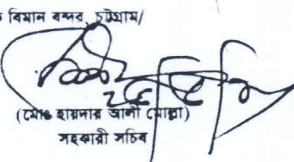 বিমান বন্দর, চট্টগ্রাম/
(মোঃ হায়দার আলী মোল্লা)
সহকারী সচিব